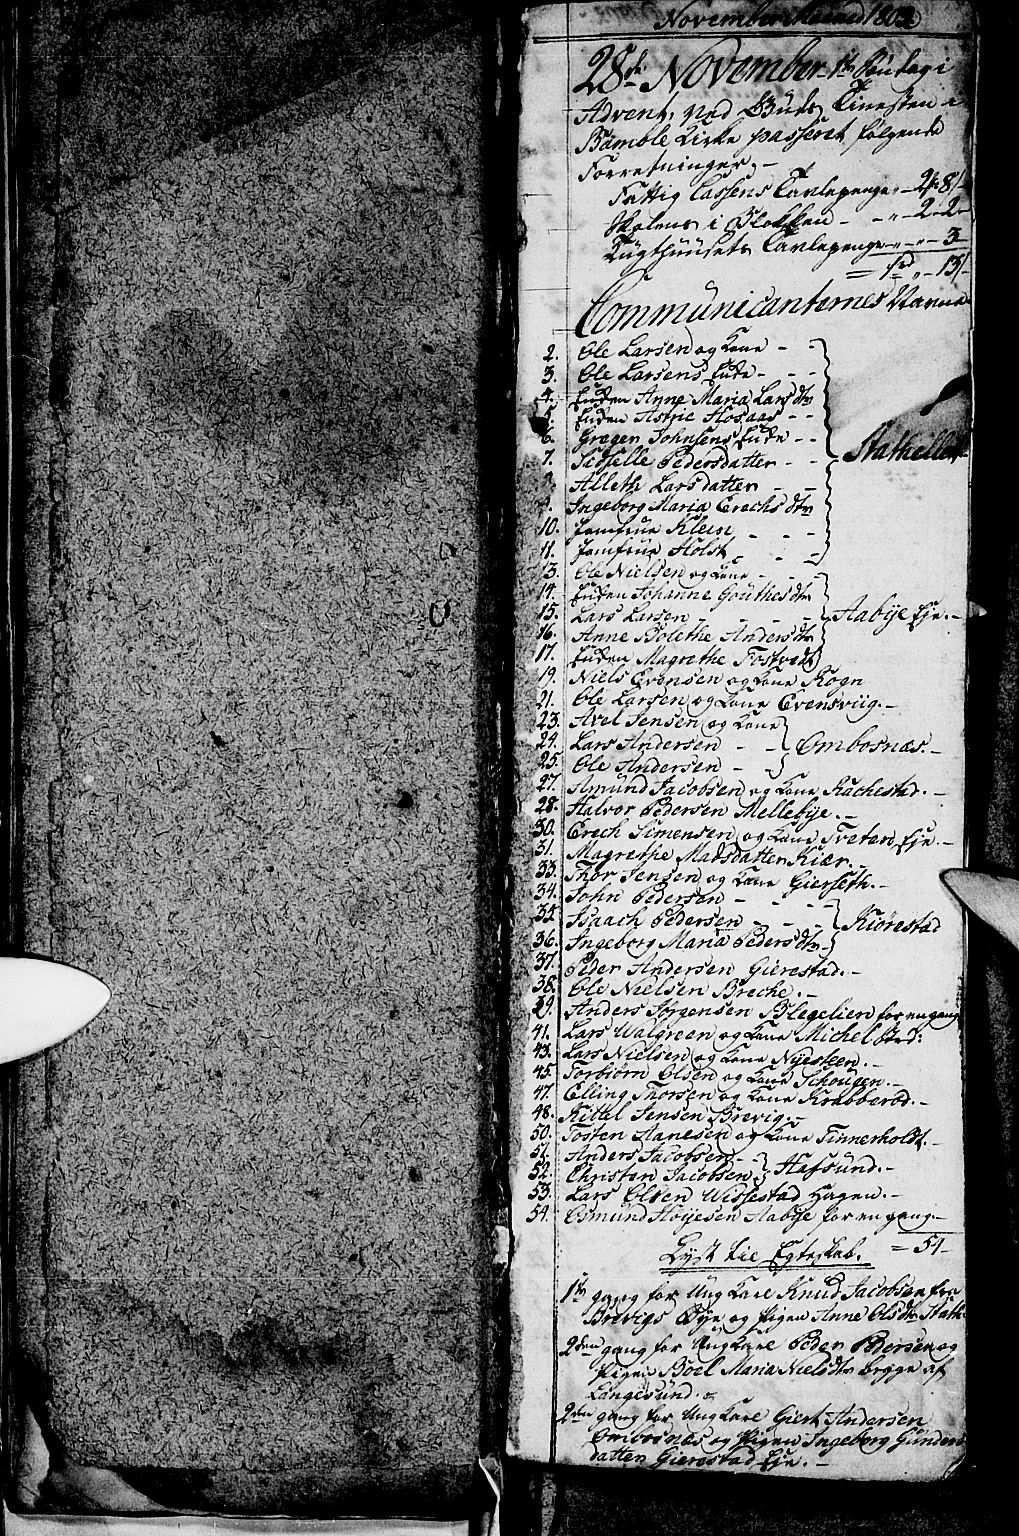 November Maaned 1802
28de November 1te Søndag i
Advent, ved Guds Tienesten i
Bamble Kirke passeret følgende
Forretninger, -
Fattig Cassens Tavlepenge „ - 2 8/-
Skolens i Blokken - - „ - 2 - 2 -
Tugthuusets Tavlepenge - „ - „ - 3 -
= 1 „ - 13/-
Communicanternes Navne
2. Ole Larsen og Kone - -
3. Ole Larsens Enke - - -
4. Enken Anne Maria Larsdtr
5. Enken Astric Hosaas - -
6. Gregen Johnsens Enke - -
7. Sidselle Pedersdatter - - Stathellen
8. Alleth Larsdatter - -
9. Ingeborg Maria Erechsdtr
10. Jomfrue Klein - - -
11. Jomfrue Holst - - -
13. Ole Nielsen og Kone - - -
14. Enken Johanne Gouthesdtr
15. Lars Larsen - - - - Aabye Eje. -
16. Anne Bolethe Andersdtr
17. Enken Magrethe Tostvedt
19. Niels Evensen og Kone Rogn
21. Ole Larsen og Kone Evensviig. -
23. Axel Jensen og Kone
24. Lars Andersen - - Ombosnæs. -
25. Ole Andersen -
27. Amund Jacobsen og Kone Rachestad. -
28. Halvor Pedersen Mellebye. -
30. Erech Simensen og Kone Tveten Eje. -
31. Magrethe Madsdatter Kiær. -
33. Thor Jensen og Kone Gierseth. -
34. John Pedersen - - - -
35. Isaach Pedersen - - - Kiørestad
36. Ingeborg Maria Pedersdtr -
37. Peder Andersen Gierestad. -
38. Ole Nielsen Breche. -
39. Anders Jørgensen Blegelien for en gang
41. Lars Walgreen og Kone Michelsted:
43. Lars Nielsen og Kone Nyesteen. -
45. Torbiørn Olsen og Kone Schougen. -
47. Elling Thorsen og Kone Krabberød. -
48. Kittel Jensen Brevig. -
50. Tosten Aanesen og Kone Tinnerholdt. -
51. Anders Jacobsen -
52. Christen Jacobsen Hafsund. -
53. Lars Olsen Wissestad Hagen. -
54. Osmund Høyesen Aabye for en gang. -
Lyst til Egteskab. = 54 -
1te gang for Ung Karl Knud Jacobsen fra
Brevigs Øye og Pigen Anne Olsdtr Stath
2den gang for Ung Karl Peder Pedersen og
Pigen Boel Maria Nielsdtr begge af
Langesund. -
2den gang for Ung Karl Giert Andersen
Ombosnes og Pigen Ingeborg Gunders
datter Gierestad Eje. -